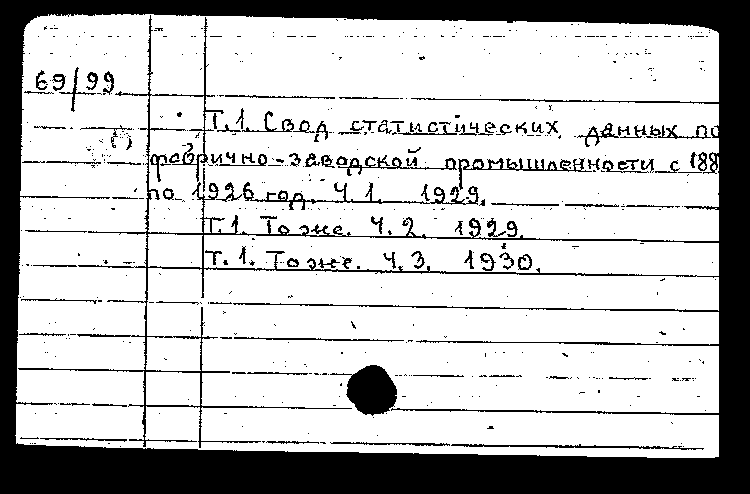 69/99.
Т.1. Свод статистических данных по
фабрично-заводской промышленности с 188
по 1926 год. Ч.1. 1929.
Т.1. То же. Ч.2. 1929.
Т.1. То же. Ч.3. 1930.